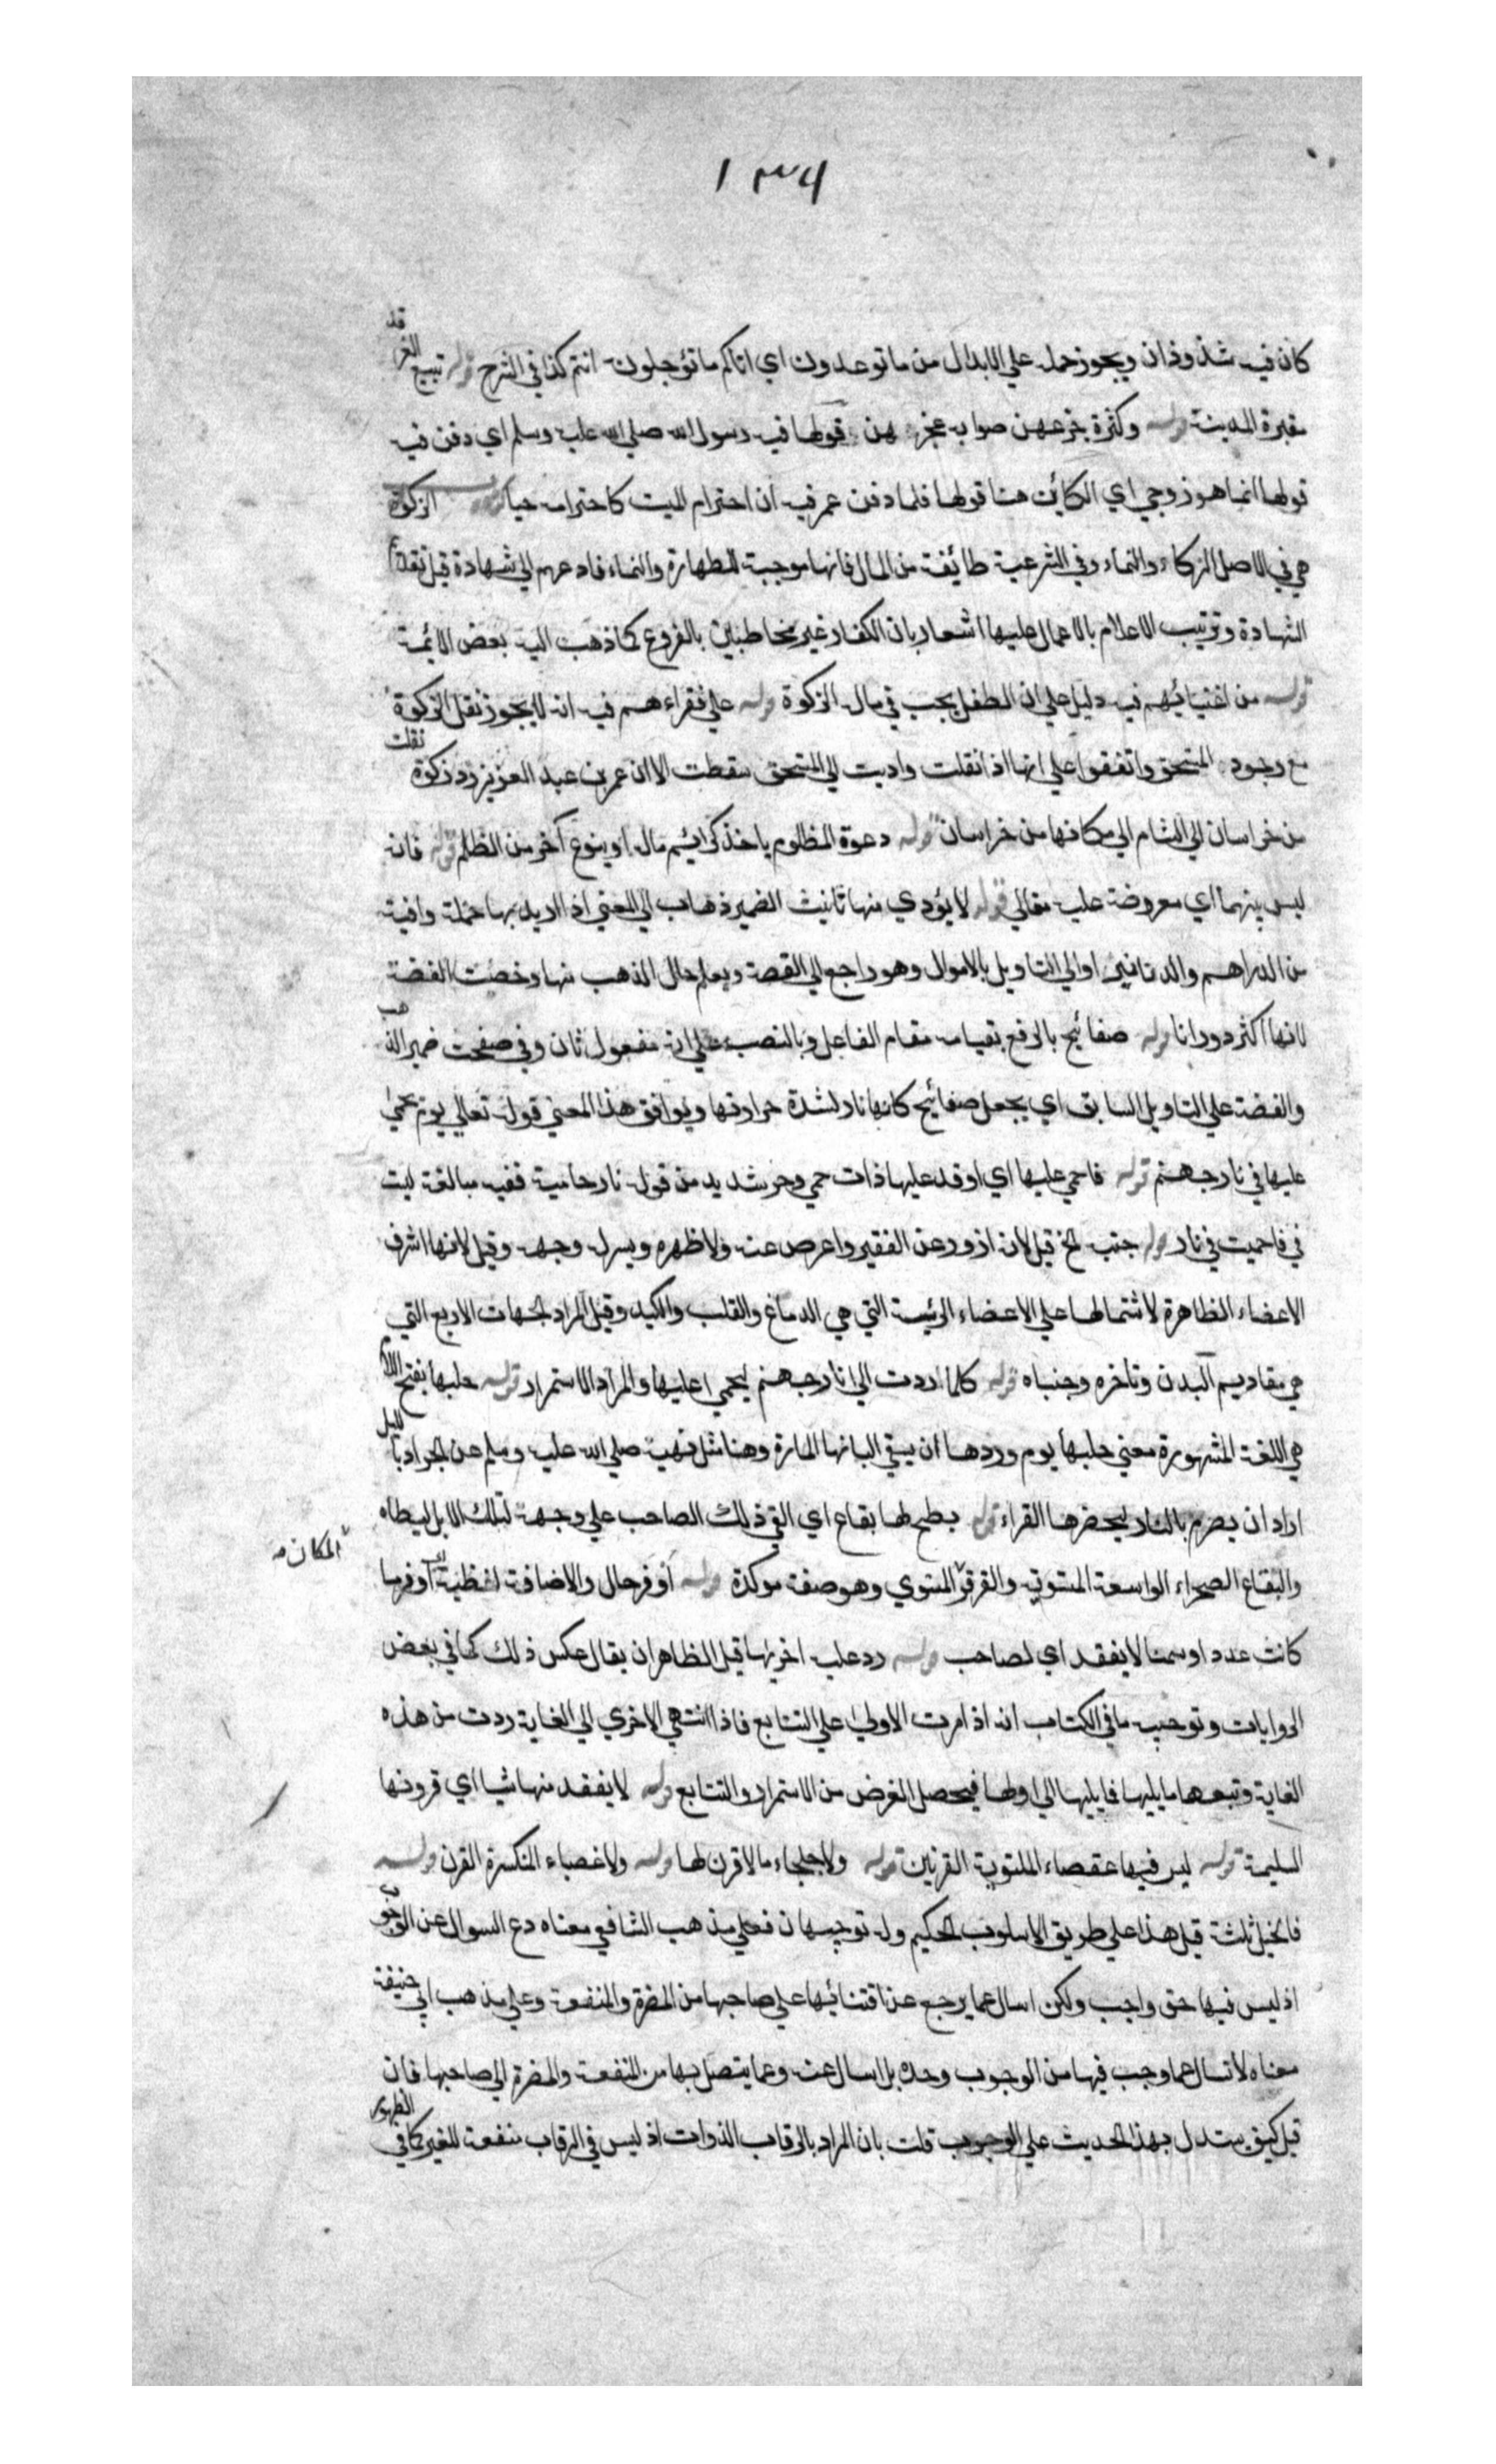 ١٣٦
كان فيه شذوذان ويجوز حمله علي الابدال من ما توعدون اي اتاكم ما تؤجلون انتم كذا في الشرح قوله بقيع الغرقد
مقبرة المدينة قوله وكثرة جزعهن صوابه عجزهن قولها فيه رسول الله صلي الله عليه وسلم اي دفن فيه
قولها انما هو زوجي اي الكائن هنا قولها فلما دفن عمر فيه ان احترام الميت كاحترامه حيا الزكوة
هي في الاصل الزكاء والنماء وفي الشرعية طائفة من المال فانها موجبة للطهارة والنماء فادعهم الي شهادة قيل تقديم
الشهادة وترتيب الاعلام بالاعمال عليها اشعار بان الكفار غير مخاطبين بالفروع كما ذهب اليه بعض الائمة
قوله من اغنيائهم فيه دليل علي ان الطفل يجب في ماله الزكوة قوله علي فقراءهم فيه انه لا يجوز نقل الزكوة
مع وجود المستحق واتفقوا علي انها اذا نقلت واديت الي المستحق سقطت الا ان عمر بن عبد العزيز رد زكوة نقلت
من خراسان الي الشام الي مكانها من خراسان قوله دعوة المظلوم ياخذ كرائم ماله او بنوع آخر من الظلم قوله فانه
ليس بينهما اي معروضة عليه تعالي قوله لا يؤدي منها تانيث الضمير ذهاب الي المعني اذ اريد بها جملة وافية
من الدراهم والدنانير او الي التاويل بالاموال وهو راجع الي القصة ويعلم حال الذهب منها وخصت الفضة
لانها اكثر دورانا قوله صفائح بالرفع بقيامه مقام الفاعل وبالنصب علي انه مفعول ثان وفي صفحت ضمير الذهب
والفضة علي التاويل السابق اي يجعل صفائح كانها نار لشدة حرارتها ويوافق هذا المعني قوله تعالي يوم يحمي
عليها في نار جهنم قوله فاحمي عليها اي اوقد عليها ذات حمي وحر شديد من قوله نار حامية ففيه مبالغة ليت
في فاحميت في نار قوله جنبه الخ قيل لانه ازور عن الفقير واعرض عنه وولا ظهره ويسر له وجهه وقيل لانها اشرف
الاعضاء الظاهرة لاشتمالها علي الاعضاء الرئيسة التي هي الدماغ والقلب والكبد وقيل المراد الجهات الاربع التي
هي مقاديم البدن وتأخره وجنباه قوله كلما ردت الي نار جهنم ليحمي عليها والمراد الاستمرار قوله حلبها بفتح اللام
هي اللغة المشهورة معني حلبها يوم وردها ان يسقي البانها المارة وهذا مثل نهيه صلي الله عليه وسلم عن الجداد بالليل
اراد ان يصرم بالنهار ليحضرها الفقراء قوله بطح لها بقاع اي القي ذلك الصاحب علي وجهه لتلك الابل ليطاه
والبقاع الصحراء الواسعة المستوية والقرقر المستوي وهو صفة موكدة قوله اوفر حال والاضافة لفظية اي اوفر ما
المكان
كانت عددا وسمنا لا يفقد اي لصاحب قوله رد عليه اخريها قيل الظاهر ان يقال عكس ذلك كما في بعض
الروايات وتوجيه ما في الكتاب انه اذا مرت الاولي علي التتابع فاذا انتهي الاخري الي الغاية ردت من هذه
الغاية وتبعها ما يليها فما يليها الي اولها فيحصل الغرض من الاستمرار والتتابع قوله لا يفقد منها شيا اي قرونها
السليمة قوله ليس فيها عقصاء الملتوية القرنين قوله ولا جلجاء ما لا قرن لها قوله ولا غصباء المنكسرة القرن قوله
فالخيل ثلثة قيل هذا علي طريق الاسلوب الحكيم وله توجيهان فعلي مذهب الشافعي معناه دع السوال عن الوجوب
اذ ليس فيها حق واجب ولكن اسال عما يرجع عن اقتنائها علي صاحبها من المضرة والمنفعة وعلي مذهب ابي حنيفة
معناه لا تسال عما وجب فيها من الوجوب وحده بل اسال عنه وعما يتصل بها من المنفعة والمضرة الي صاحبها فان
قيل كيف يستدل بهذا الحديث علي الوجوب قلت بان المراد بالرقاب الذوات اذ ليس في الرقاب منفعة للغير كما في الظهور